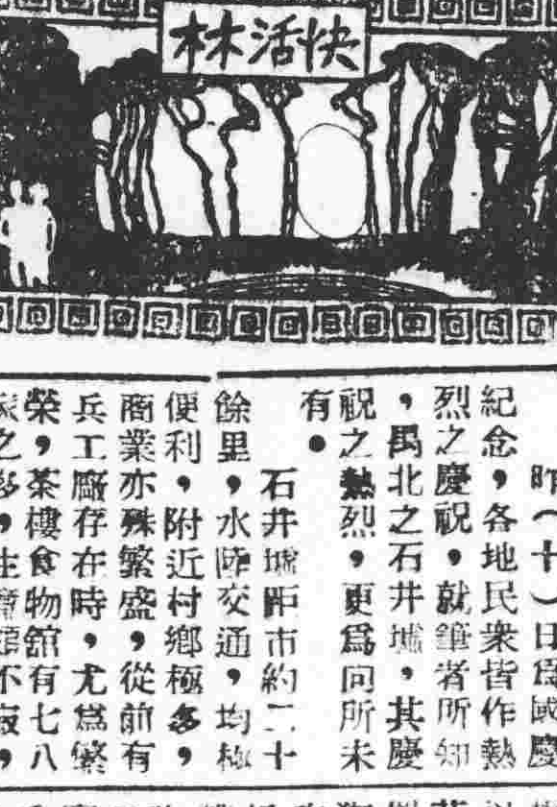 快活林
昨（十）日爲國慶
紀念，各地民衆皆作熱
烈之慶祝，就筆者所知
，禺北之石井墟，其慶
祝之熱烈，更爲向所未
有●
石井墟距市約二十
餘里，水陸交通，均極
便利，附近村鄉極多，
商業亦殊繁盛，從前有
兵工廠存在時，尤爲繁
榮，茶樓食物舘有七八
家之多，生意不